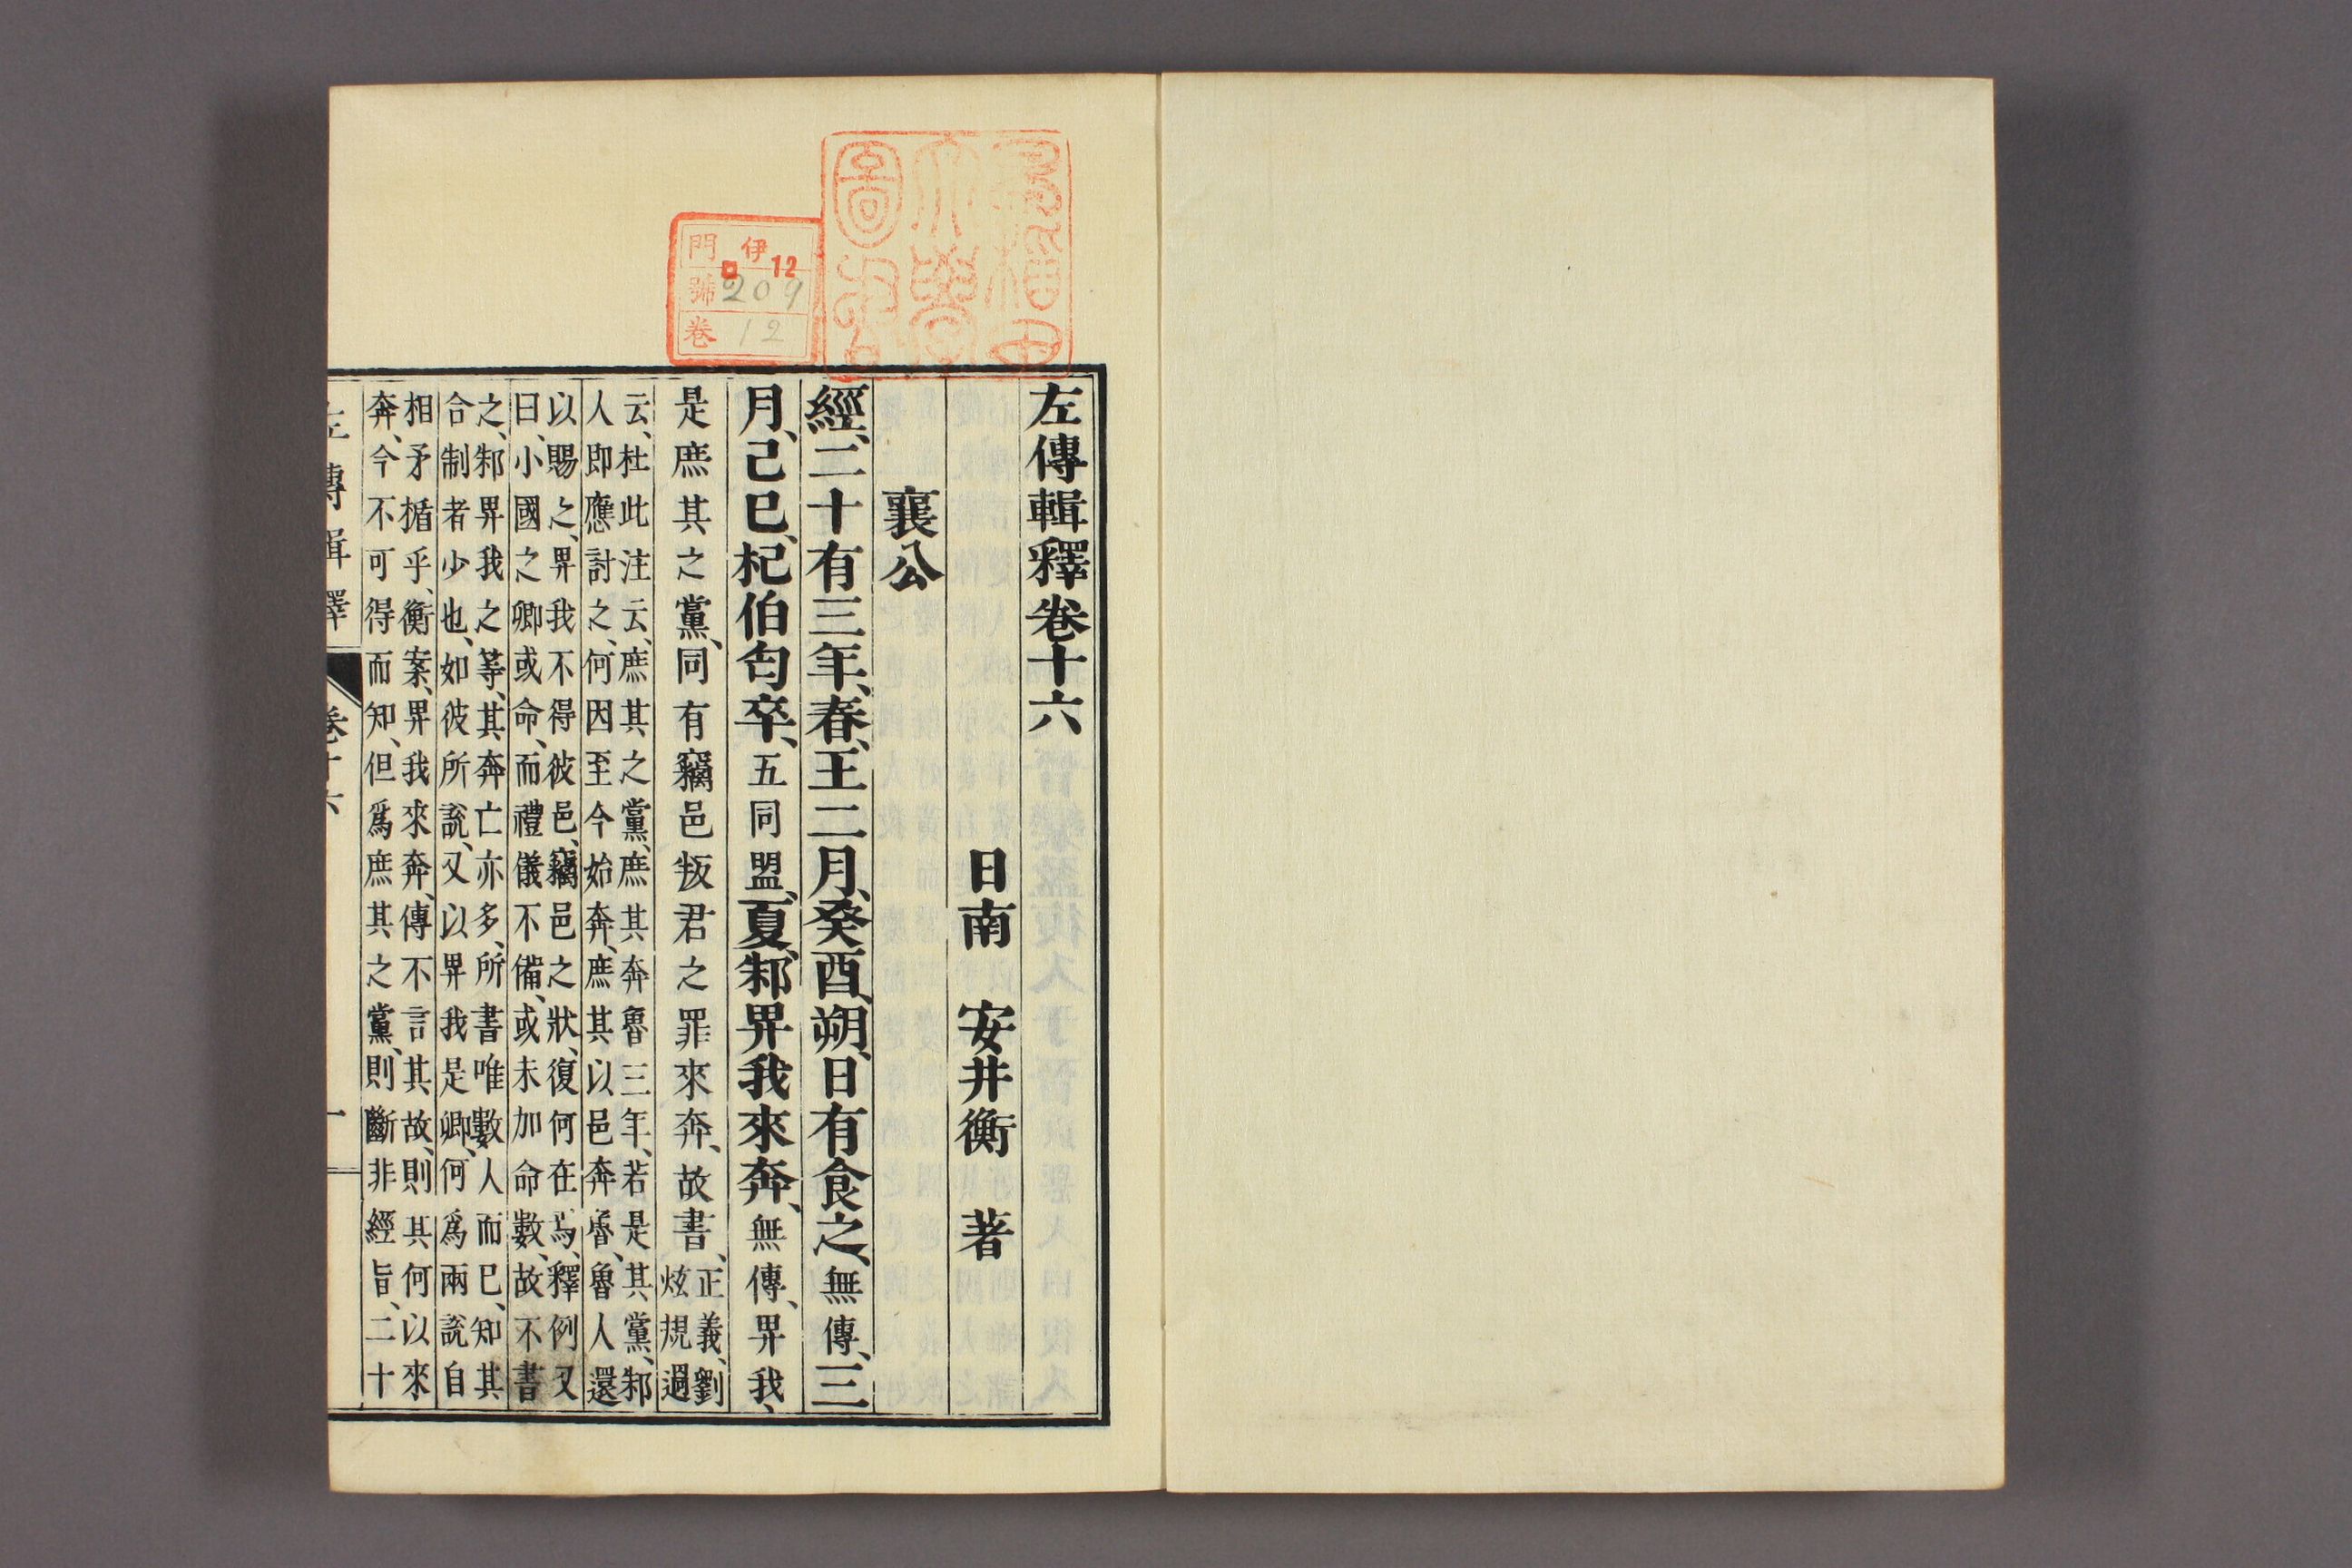 左傳輯釋卷十六
日南　安井衡　著
襄公
經、二十有三年、春、王二月、癸酉、朔、日有食之、無傳、三
月、己巳、杞伯匄卒、五同盟、夏、邾畀我來奔、無傳、畀我、
是庶其之黨、同有竊邑叛君之罪來奔、故書、正義、劉
炫規過
云、杜此注云、庶其之黨、庶其奔魯三年、若是其黨、邾
人即應討之、何因至今始奔、庶其以邑奔魯、魯人還
以賜之、畀我不得彼邑、竊邑之狀、復何在焉、釋例又
曰、小國之卿或命、而禮儀不備、或未加命數、故不書
之、邾畀我之等、其奔亡亦多、所書唯數人而已、知其
合制者少也、如彼所說、又以畀我是卿、何爲兩說自
相矛楯乎、衡案、畀我來奔、傳不言其故、則其何以來
奔、今不可得而知、但爲庶其之黨、則斷非經旨、二十
左傳輯釋　卷十六　一
伊
12
門
號 209
卷 12